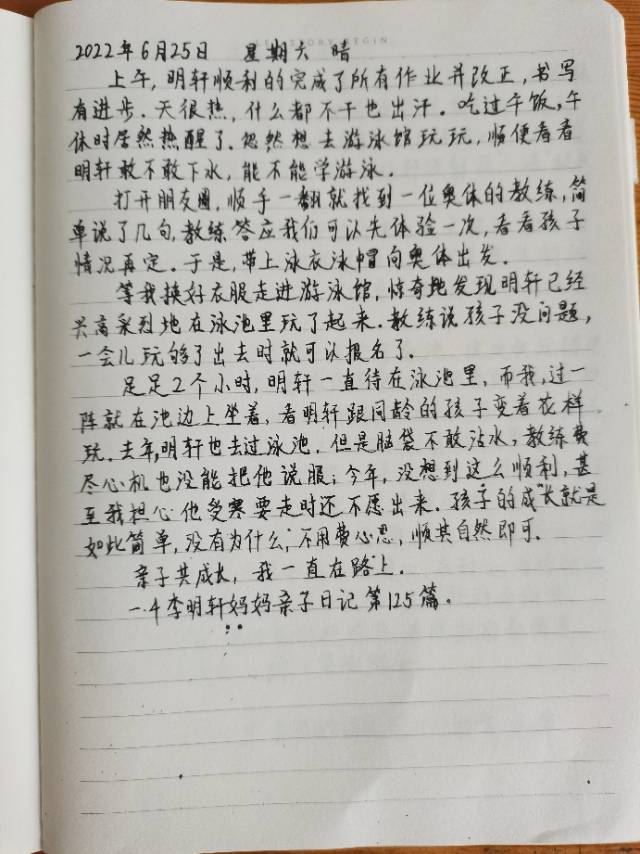 2022年6月25日 星期六 晴
上午,明轩顺利的完成了所有作业并改正,书写
有进步.天很热,什么都不干也出汗。吃过午饭,午
休时居然热醒了.忽然想去游泳馆玩玩,顺便看看
明轩敢不敢下水,能不能学游泳.
打开朋友圈,顺手一翻就找到一位奥体的教练,简
单说了几句,教练答应我们可以先体验一次,看看孩子
情况再定.于是,带上泳衣泳帽向奥体出发.
等我换好衣服走进游泳馆,惊奇地发现明轩已经
兴高采烈地在泳池里玩了起来.教练说孩子没问题,
一会儿玩够了出去时就可以报名了.
足足2个小时,明轩一直待在泳池里,而我,过一
阵就在池边上坐着,看明轩跟同龄的孩子变着花样
玩.去年,明轩也去过泳池,但是脑袋不敢沾水,教练费
尽心机也没能把他说服;今年,没想到这么顺利,甚
至我担心他受寒要走时还不愿出来.孩子的成长就是
如此简单,没有为什么,不用费心思,顺其自然即可.
亲子共成长,我一直在路上.
一.4李明轩妈妈亲子日记第125篇.